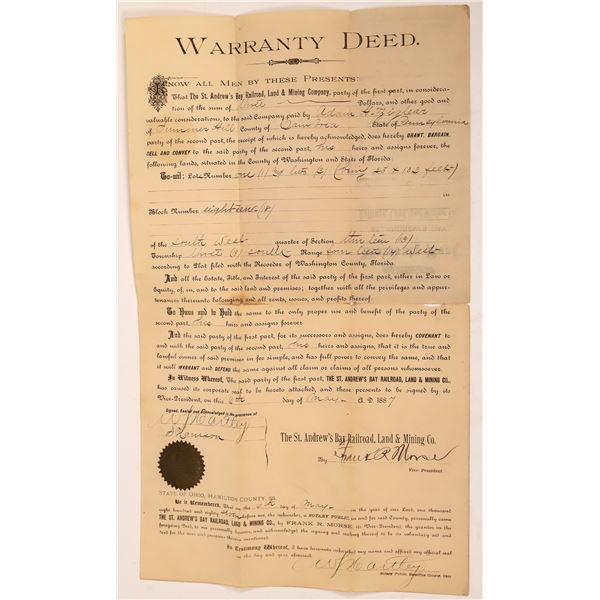 WARRANTY DEED.
KNOW ALL MEN BY THESE PRESENTS:
That The St. Andrew's Bay Railroad, Land & Mining Company, party of the first part, in considera-
tion of the sum of Dollars, and other good and
valuable considerations, to the said Company paid by Adam
of Summer Hill County of Cambria State of Pennsylvania
party of the second part, the receipt of which is hereby acknowledged, does hereby GRANT, BARGAIN,
SELL AND CONVEY to the said party of the second part, his heirs and assigns forever, the
following lands, situated in the County of Washington and State of Florida:
To-wit: Lots Number one (1) (being 25 x 102 feet)
Block Number eighteen (18)
of the South West quarter of Section
Township South Range West
according to Plat filed with the Recorder of Washington County, Florida.
And all the Estate, Title, and Interest of the said party of the first part, either in Law or
Equity, of, in, and to the said land and premises; together with all the privileges and appur-
tenances thereunto belonging and all rents, issues, and profits thereof:
To Have and to Hold the same to the only proper use and benefit of the party of the
second part, his heirs and assigns forever
And the said party of the first part, for its successors and assigns, does hereby COVENANT to
and with the said party of the second part, his heirs and assigns, that it is the true and
lawful owner of said premises in fee simple, and has full power to convey the same, and that
it will WARRANT and DEFEND the same against all claim or claims of all persons whomsoever.
In Witness Whereof, The said party of the first part, THE ST. ANDREW'S BAY RAILROAD, LAND & MINING CO.,
has caused its corporate seal to be hereto attached, and these presents to be signed by its
Vice-President, on this 6th day of May A. D. 1887
Signed, Sealed and Acknowledged in the presence of
W J Hartley
The St. Andrew's Bay Railroad, Land & Mining Co.
By Frank R. Morse
Vice President
STATE OF OHIO, HAMILTON COUNTY, SS.
Be it Remembered, That on the 6th day of May in the year of our Lord, one thousand
eight hundred and eighty seven before me, the subscriber, a NOTARY PUBLIC, in and for said County, personally came
THE ST. ANDREW'S BAY RAILROAD, LAND & MINING CO., by FRANK R. MORSE, its Vice-President, the grantor in the
foregoing Deed, to me personally known, and acknowledged the signing and sealing thereof to be its voluntary act and
deed for the uses and purposes therein mentioned.
In Testimony Whereof, I have hereunto subscribed my name and affixed my official seal
on the day and year aforesaid.
W J Hartley
Notary Public, Hamilton County, Ohio